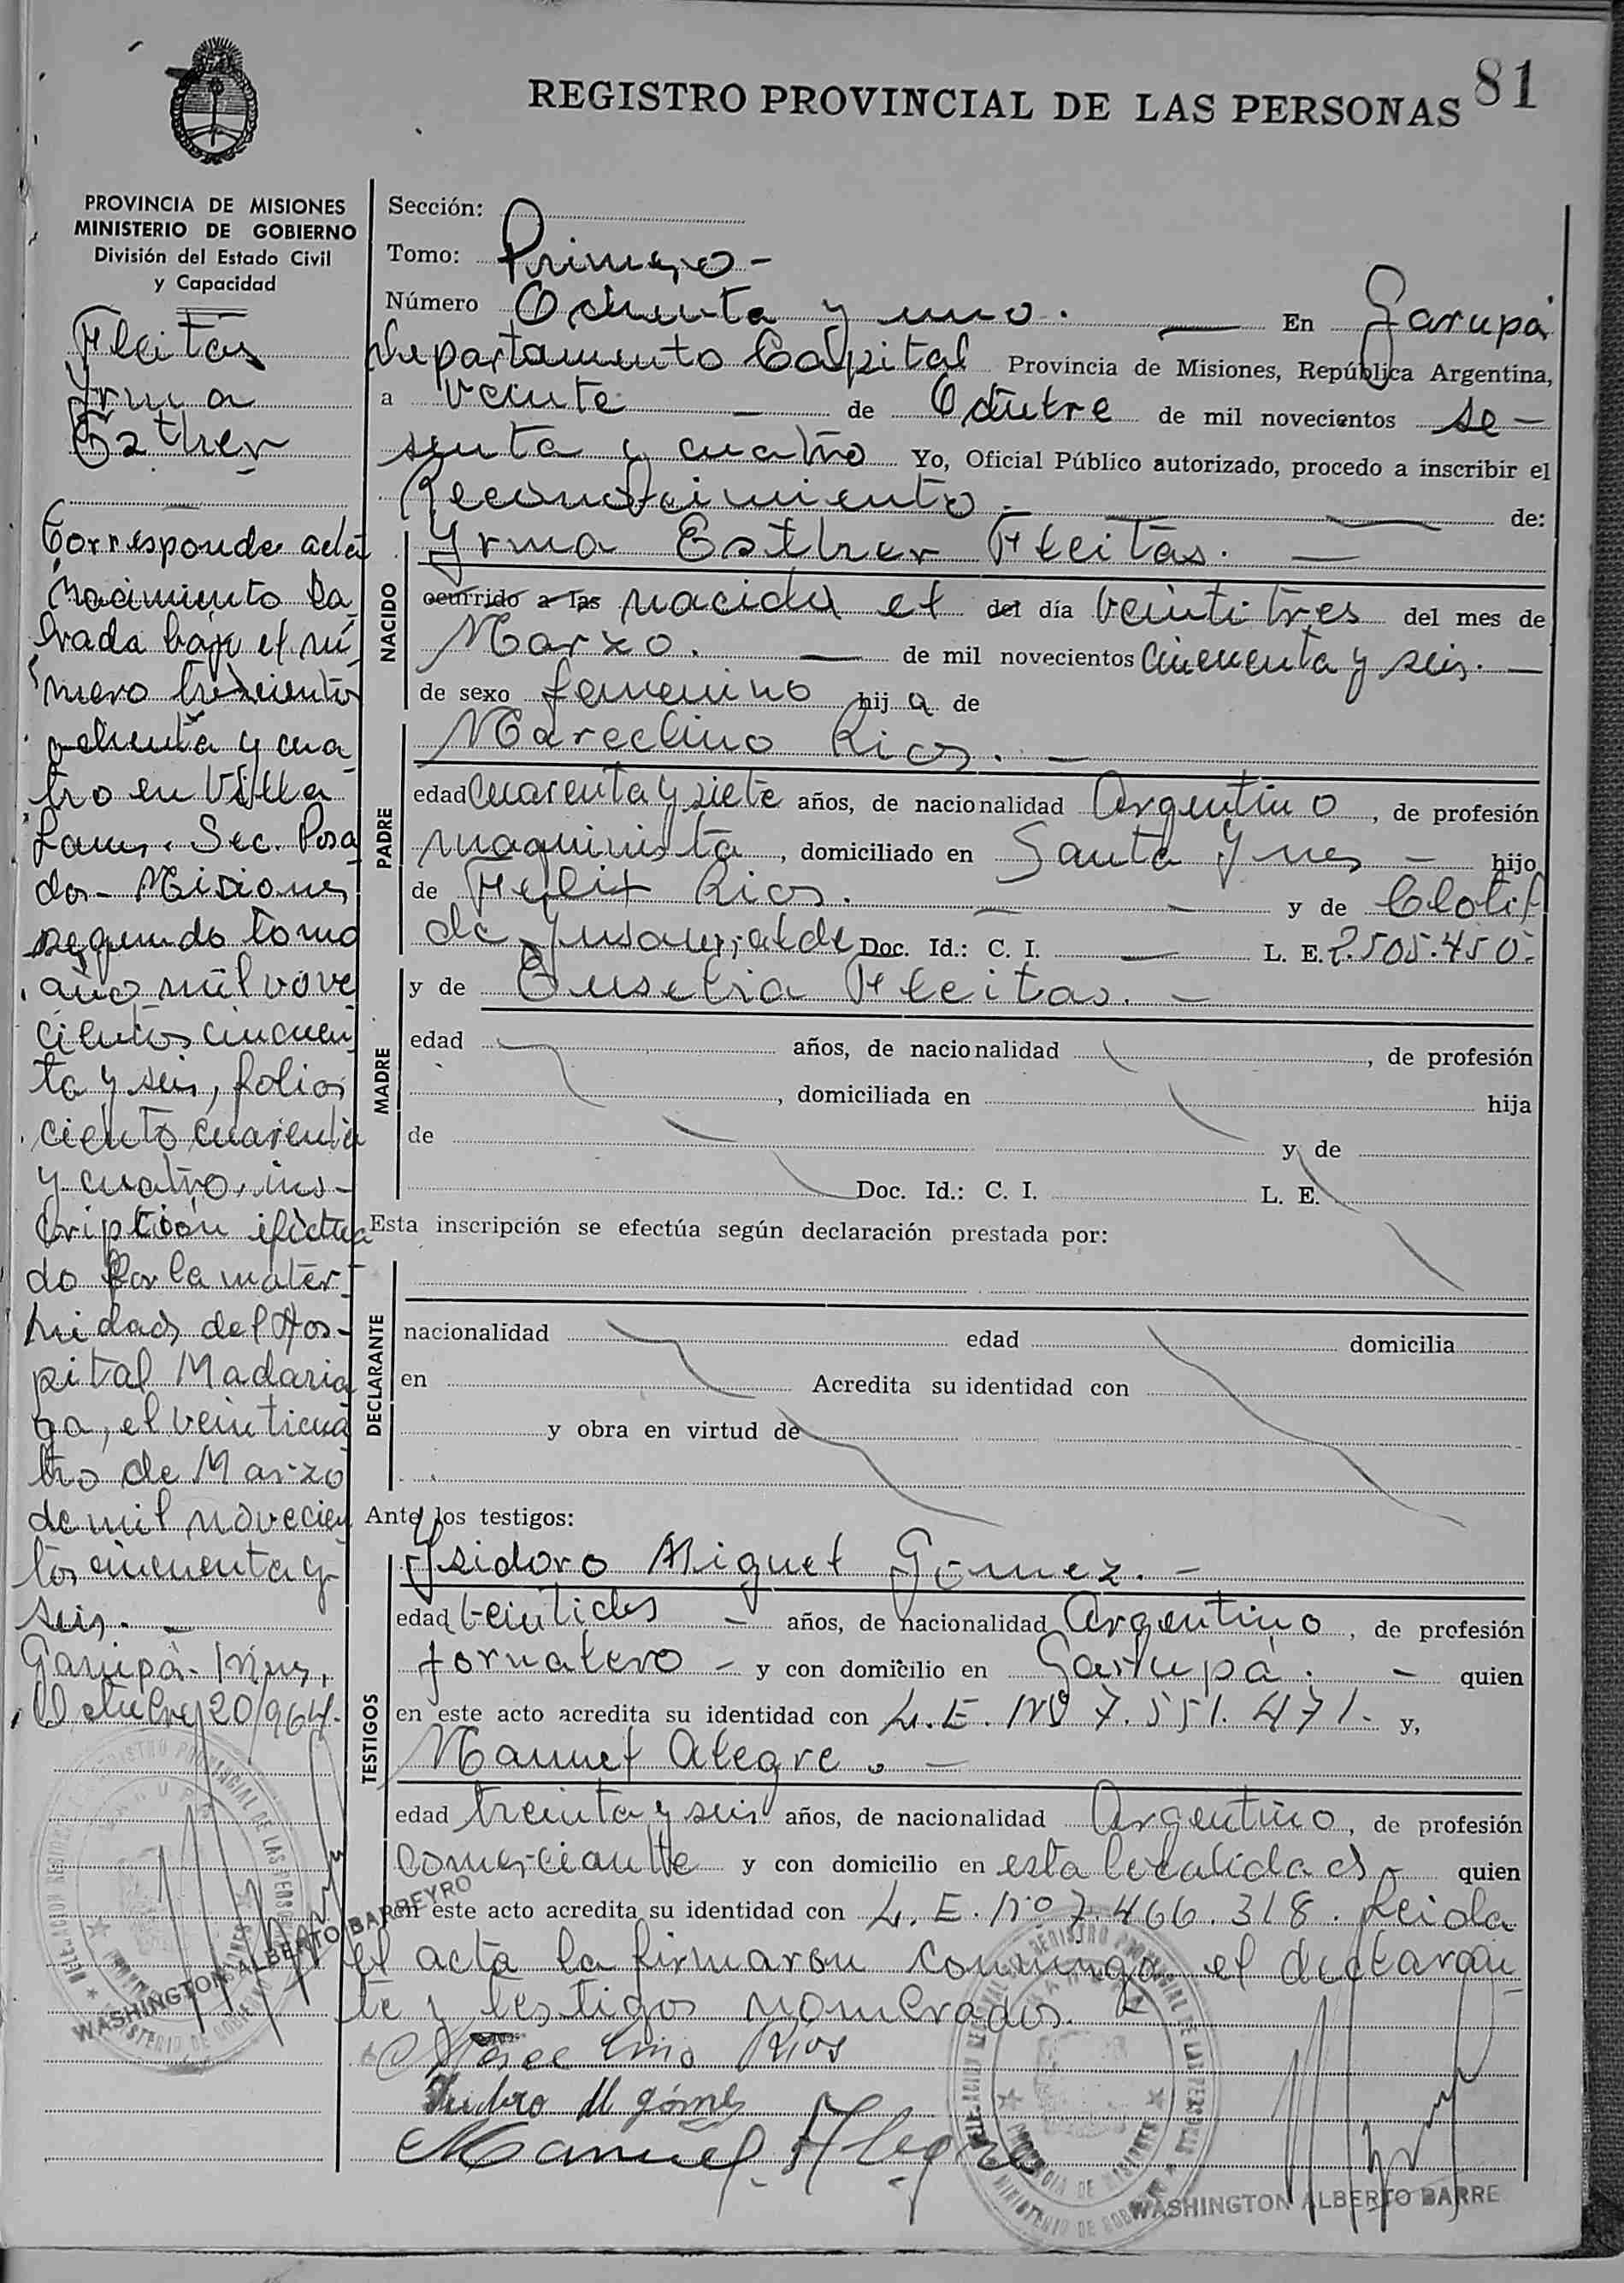 81
REGISTRO PROVINCIAL DE LAS PERSONAS
PROVINCIA DE MISIONES
MINISTERIO DE GOBIERNO
División del Estado Civil
y Capacidad
Fleitas
Yrma
Esther
Corresponde acta
nacimiento la
brada bajo el nú
mero trescientos
ochenta y cua
tro en Villa
Lanus. Sec. Posa
das - Misiones
segundo tomo
año mil nove
cientos cincuen
ta y seis, folios
ciento cuarenta
y cuatro, ins-
cripción efectua
do por la mater
nidad del Hos-
pital Madaria
ga, el veinticua
tro de Marzo
de mil novecien
tos cincuenta y
seis. -
Garupá - Mnes,
Octubre 20/964.
WASHINGTON ALBERTO BARREYRO
Sección:
Tomo: Primero -
Número Ochenta y uno. — En Garupá
Departamento Capital Provincia de Misiones, República Argentina,
a veinte — de Octubre de mil novecientos se-
senta y cuatro Yo, Oficial Público autorizado, procedo a inscribir el
Reconocimiento — de:
NACIDO
Yrma Esther Fleitas. —
ocurrido a las nacida el del día veintitres del mes de
Marzo. — de mil novecientos cincuenta y seis. —
de sexo femenino hij a de
PADRE
Marcelino Rios. —
edad cuarenta y siete años, de nacionalidad Argentino, de profesión
maquinista, domiciliado en Santa Ynes — hijo
de Felix Rios. — y de Clotil
de Doc. Id.: C. I. — L. E. 2.505.450.
MADRE
y de Eusebia Fleitas. —
edad años, de nacionalidad , de profesión
, domiciliada en hija
de y de
Doc. Id.: C. I. L. E.
Esta inscripción se efectúa según declaración prestada por:
DECLARANTE
nacionalidad edad domicilia
en Acredita su identidad con
y obra en virtud de
Ante los testigos:
TESTIGOS
Ysidoro Miguel Gómez. —
edad veintidos — años, de nacionalidad Argentino, de profesión
jornalero — y con domicilio en Garupá. — quien
en este acto acredita su identidad con L. E. Nº 7.551.471. y,
Manuel Alegre. —
edad treinta y seis años, de nacionalidad Argentino, de profesión
Comerciante y con domicilio en esta localidad — quien
en este acto acredita su identidad con L. E. Nº 7.466.318. Leida
el acta la firmaron conmigo el declaran
te y testigos nombrados. —
Marcelino Rios
M gómez
Manuel Alegre
WASHINGTON ALBERTO BARRE